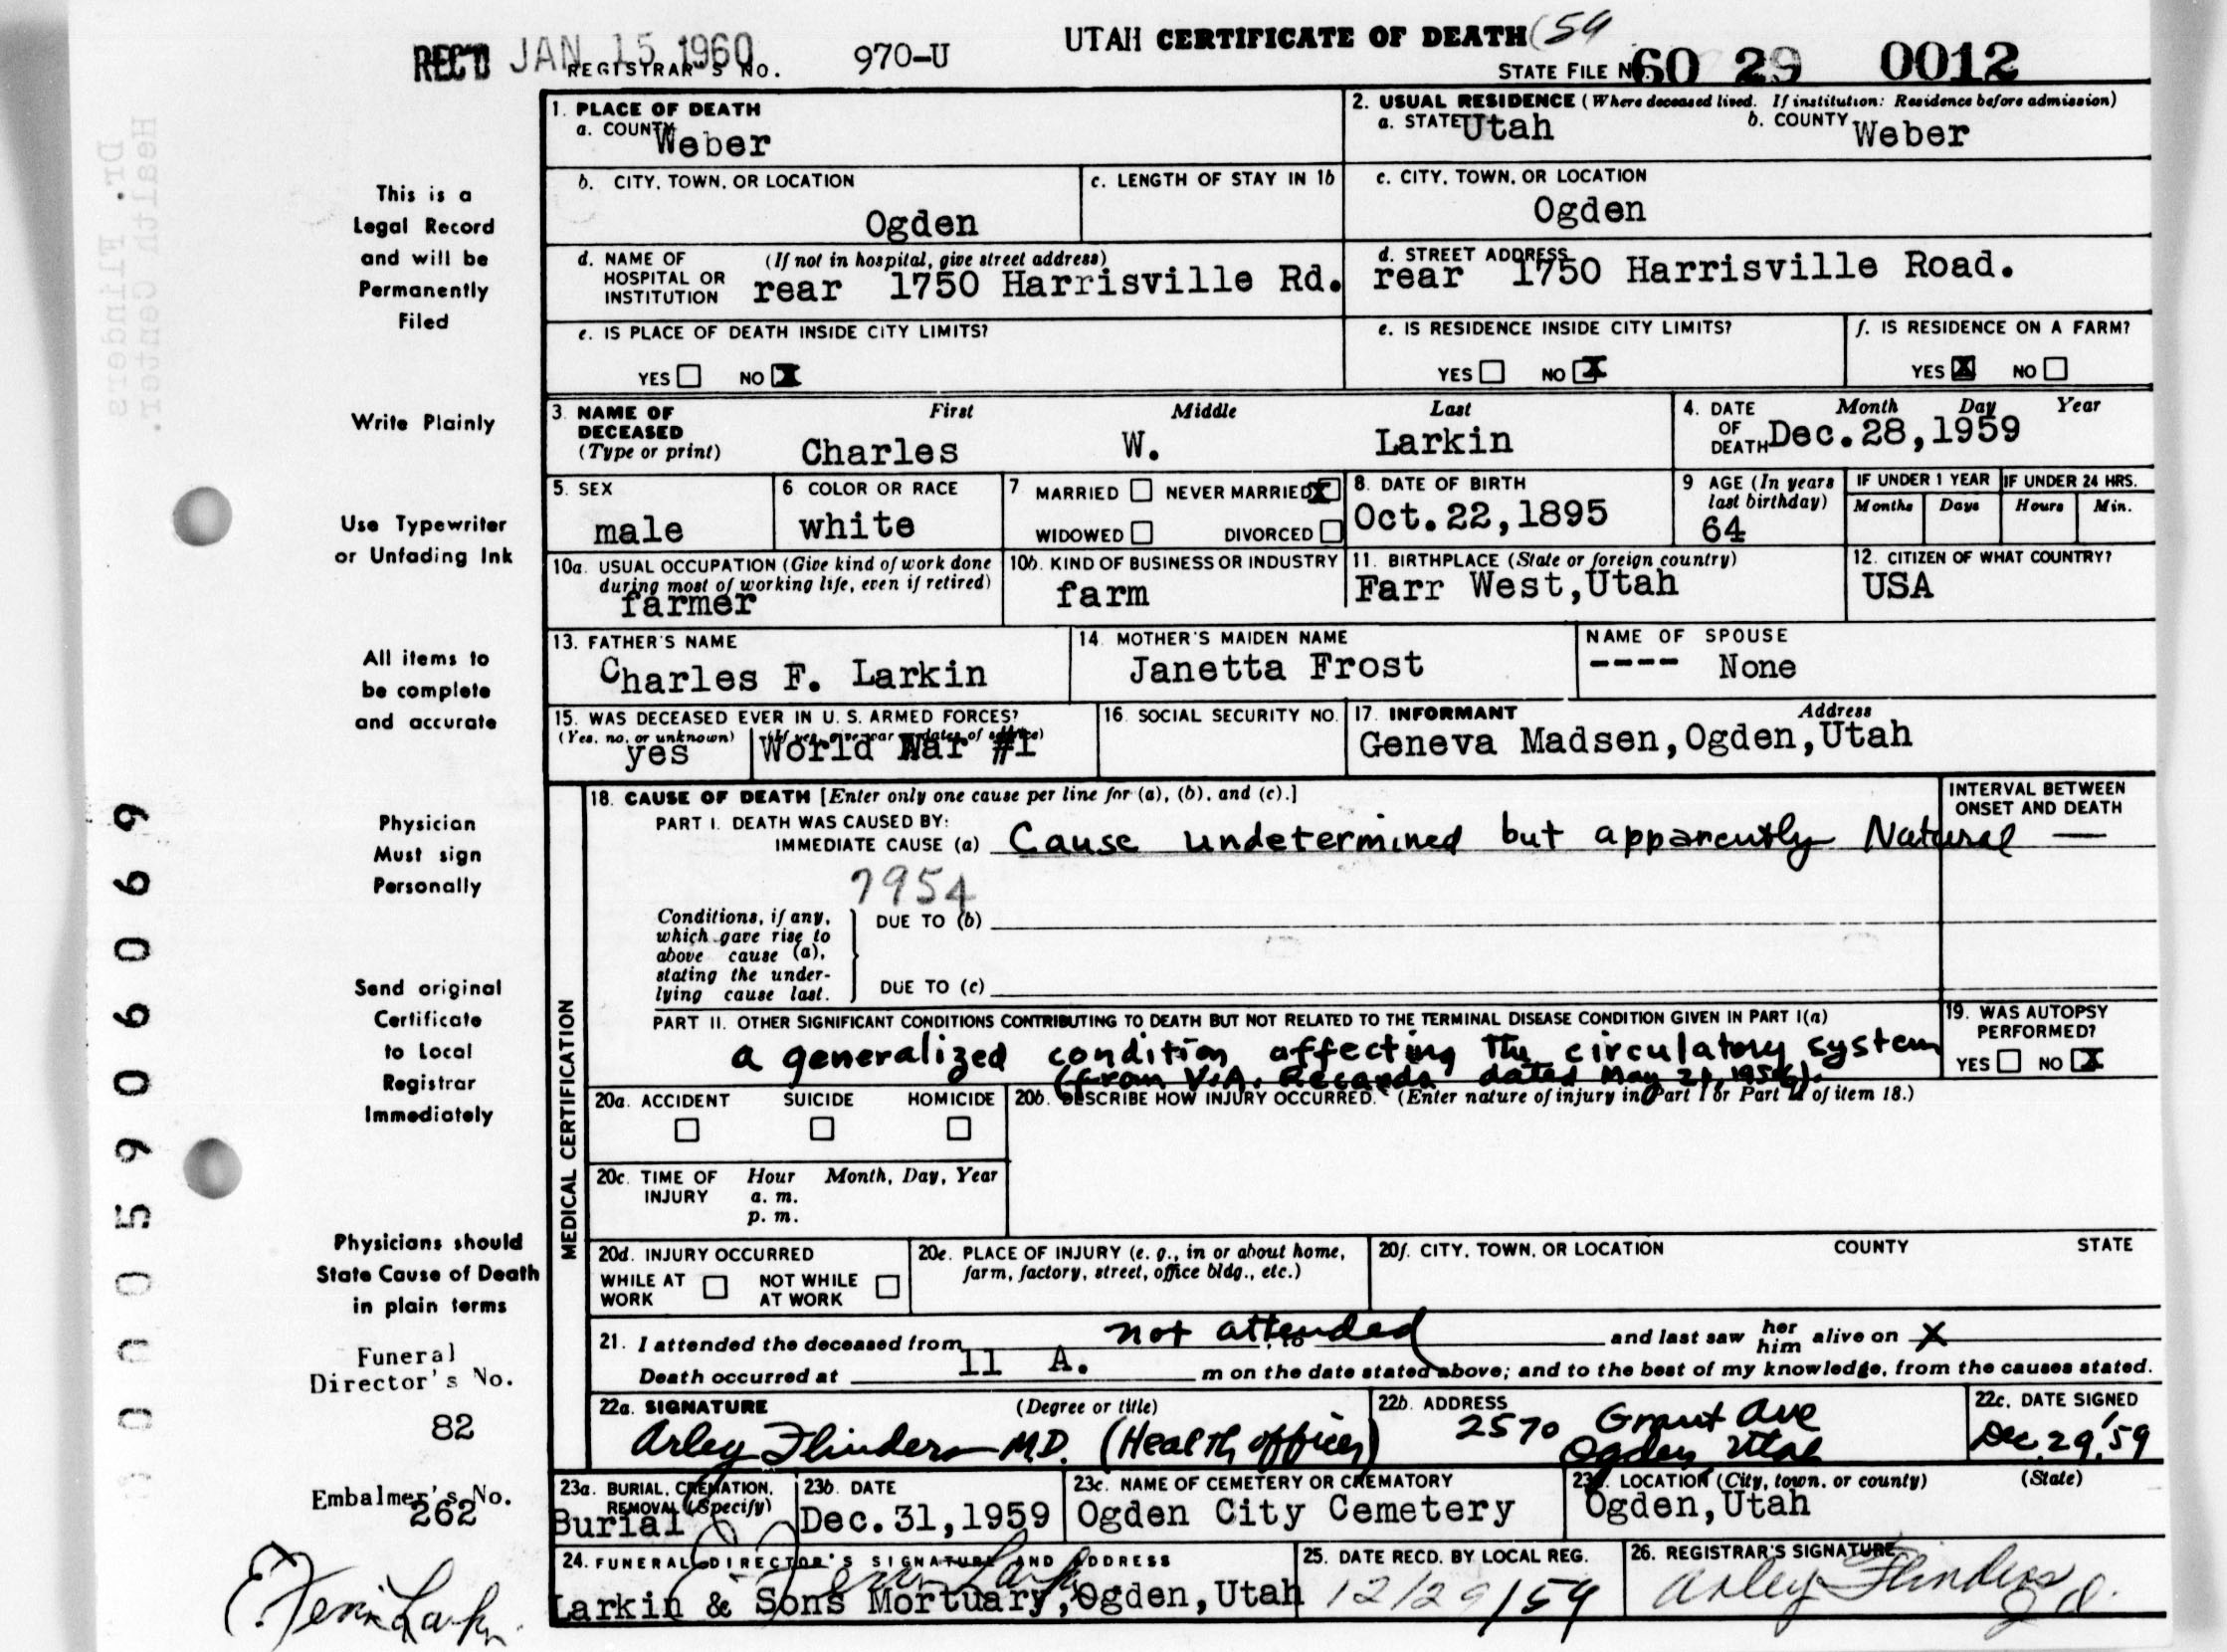 REC'D JAN 15 1960
REGISTRAR'S NO. 970-U
UTAH CERTIFICATE OF DEATH (59
STATE FILE NO. 60 29 0012
This is a
Legal Record
and will be
Permanently
Filed
Write Plainly
Use Typewriter
or Unfading Ink
All items to
be complete
and accurate
Physician
Must sign
Personally
Send original
Certificate
to Local
Registrar
Immediately
Physicians should
State Cause of Death
in plain terms
Funeral
Director's No.
82
Embalmer's No.
262
Health Center.
Dr. Flinders
1. PLACE OF DEATH
a. COUNTY Weber
2. USUAL RESIDENCE (Where deceased lived. If institution: Residence before admission)
a. STATE Utah b. COUNTY Weber
b. CITY, TOWN, OR LOCATION Ogden
c. LENGTH OF STAY IN 1b
c. CITY, TOWN, OR LOCATION
Ogden
d. NAME OF HOSPITAL OR INSTITUTION (If not in hospital, give street address)
rear 1750 Harrisville Rd.
d. STREET ADDRESS
rear 1750 Harrisville Road.
e. IS PLACE OF DEATH INSIDE CITY LIMITS?
YES NO X
e. IS RESIDENCE INSIDE CITY LIMITS?
YES NO X
f. IS RESIDENCE ON A FARM?
YES X NO
3. NAME OF DECEASED (Type or print)
First Middle Last
Charles W. Larkin
4. DATE OF DEATH Month Day Year
Dec.28,1959
5. SEX
male
6 COLOR OR RACE
white
7 MARRIED NEVER MARRIED X
WIDOWED DIVORCED
8. DATE OF BIRTH
Oct.22,1895
9 AGE (In years last birthday)
64
IF UNDER 1 YEAR IF UNDER 24 HRS.
Months Days Hours Min.
10a. USUAL OCCUPATION (Give kind of work done during most of working life, even if retired)
farmer
10b. KIND OF BUSINESS OR INDUSTRY
farm
11. BIRTHPLACE (State or foreign country)
Farr West,Utah
12. CITIZEN OF WHAT COUNTRY?
USA
13. FATHER'S NAME
Charles F. Larkin
14. MOTHER'S MAIDEN NAME
Janetta Frost
NAME OF SPOUSE
---- None
15. WAS DECEASED EVER IN U. S. ARMED FORCES?
(Yes, no, or unknown) (If yes, give war or dates of service)
yes World War #1
16. SOCIAL SECURITY NO.
17. INFORMANT Address
Geneva Madsen,Ogden,Utah
MEDICAL CERTIFICATION
18. CAUSE OF DEATH [Enter only one cause per line for (a), (b), and (c).]
INTERVAL BETWEEN ONSET AND DEATH
PART I. DEATH WAS CAUSED BY:
IMMEDIATE CAUSE (a) Cause undetermined but apparently Natural —
7954
Conditions, if any, which gave rise to above cause (a), stating the underlying cause last.
DUE TO (b)
DUE TO (c)
PART II. OTHER SIGNIFICANT CONDITIONS CONTRIBUTING TO DEATH BUT NOT RELATED TO THE TERMINAL DISEASE CONDITION GIVEN IN PART I(a)
a generalized condition affecting the circulatory system
(from V.A. Records dated May 21,
19. WAS AUTOPSY PERFORMED?
YES NO X
20a. ACCIDENT SUICIDE HOMICIDE
20b. DESCRIBE HOW INJURY OCCURRED. (Enter nature of injury in Part I or Part II of item 18.)
20c. TIME OF INJURY Hour Month, Day, Year
a. m.
p. m.
20d. INJURY OCCURRED
WHILE AT WORK NOT WHILE AT WORK
20e. PLACE OF INJURY (e. g., in or about home, farm, factory, street, office bldg., etc.)
20f. CITY, TOWN, OR LOCATION COUNTY STATE
21. I attended the deceased from not attended to and last saw her him alive on X
Death occurred at 11 A. m on the date stated above; and to the best of my knowledge, from the causes stated.
22a. SIGNATURE (Degree or title)
Arley Flinders M.D. (Health officer)
22b. ADDRESS
2570 Grant Ave
Ogden Utah
22c. DATE SIGNED
Dec. 29,'59
23a. BURIAL, CREMATION, REMOVAL (Specify)
Burial
23b. DATE
Dec.31,1959
23c. NAME OF CEMETERY OR CREMATORY
Ogden City Cemetery
23d. LOCATION (City, town, or county) (State)
Ogden,Utah
24. FUNERAL DIRECTOR'S SIGNATURE AND ADDRESS
Larkin & Sons Mortuary,Ogden,Utah
25. DATE RECD. BY LOCAL REG.
12/29/59
26. REGISTRAR'S SIGNATURE
Arley Flinders
000590609069